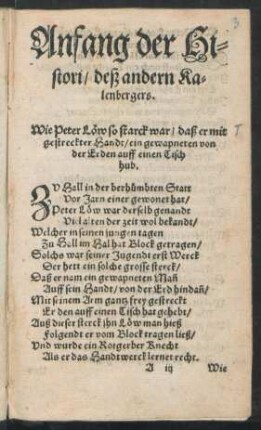 3
Anfang der Hi-
stori/ deß andern Ka-
lenbergers.
Wie Peter Löw so starck war/ daß er mit
gestreckter Handt/ ein gewapneten von
der Erden auff einen Tisch
hub.
ZV Hall in der berhümbten Statt
Vor Jarn einer gewonet hat/
Peter Löw war derselb genandt
Vil alten der zeit wol bekandt/
Welcher in seinen jungen tagen
Zu Hall im Hal hat Block getragen/
Solchs war seiner Jugendt erst Werck
Der hett ein solche grosse sterck/
Daß er nam ein gewapneten Mañ
Auff sein Handt/ von der Erd hindañ/
Mit seinem Arm gantz frey gestreckt
Er den auff einen Tisch hat gehebt/
Auß dieser sterck jhn Löw man hieß/
Folgendt er vom Block tragen ließ/
Vnd wurde ein Rotgerber Knecht
Als er das Handtwerck lernet recht.
A iij Wie